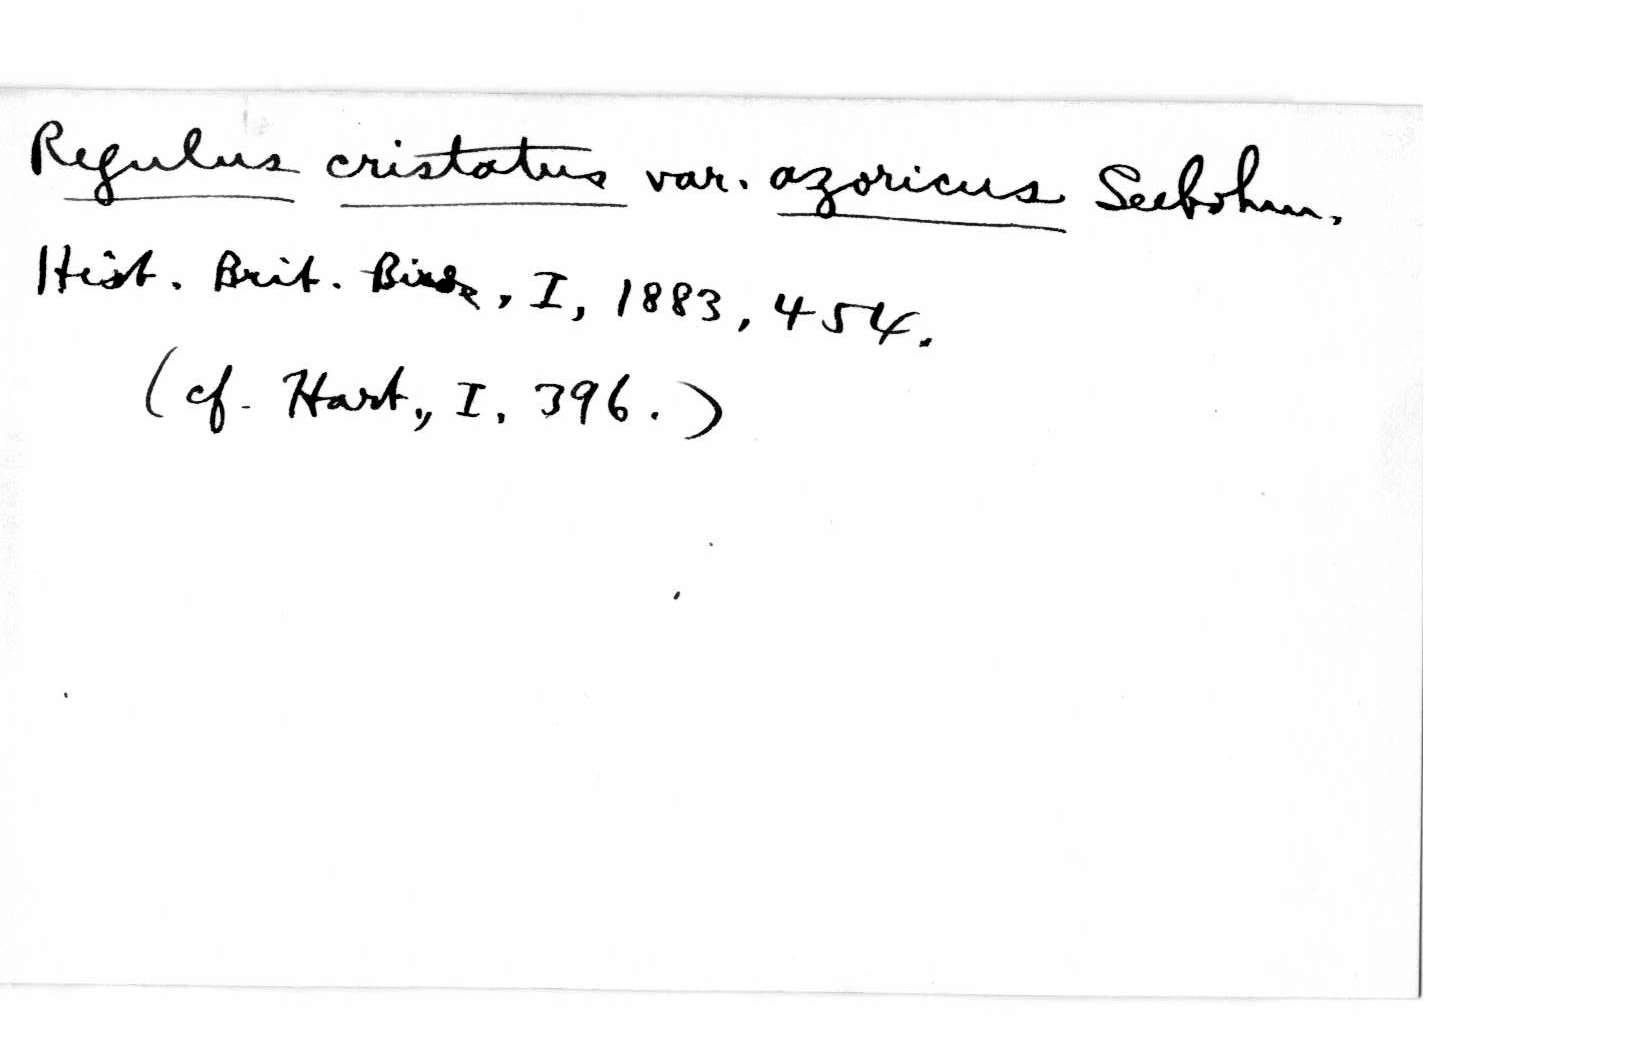 Regulus cristatus var. azoricus Seebohm,
Hist. Brit. Birds, I, 1883, 454.
(cf. Hart., I, 396.)